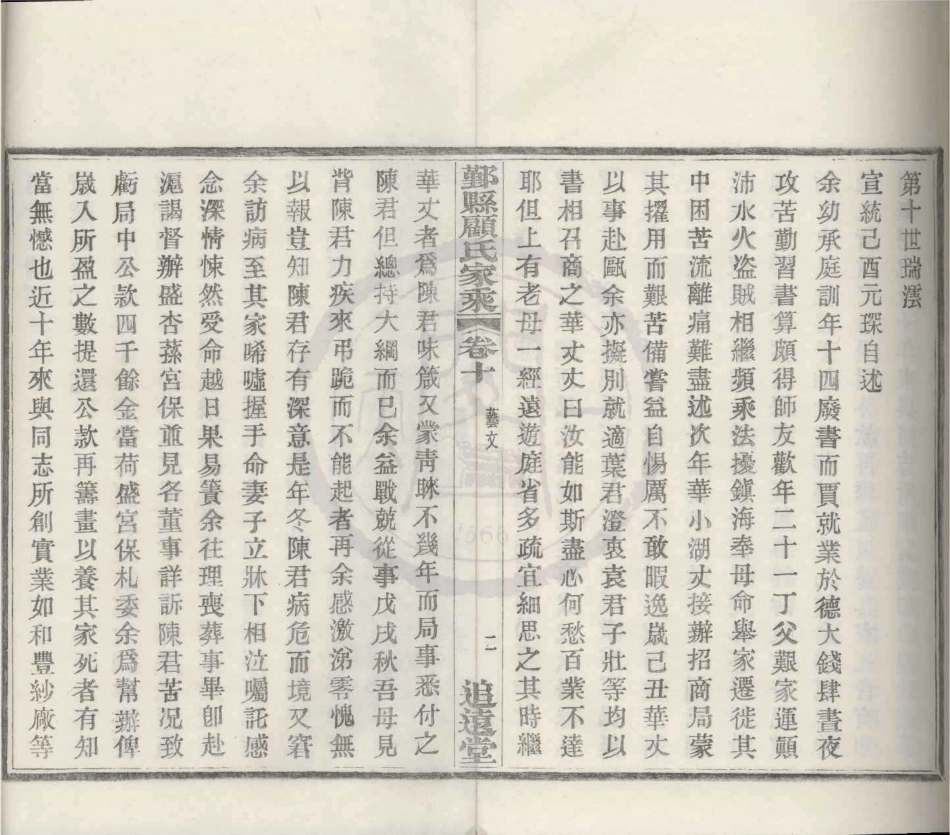 第十世瑞澐
宣統己酉元琛自述
余幼承庭訓年十四廢書而賈就業於德大錢肆晝夜
攻苦勤習書算頗得師友歡年二十一丁父艱家運顚
沛水火盗賊相繼頻乘法擾鎮海奉母命舉家遷徙其
中困苦流離痛難盡述次年華小湖丈接辦招商局蒙
其擢用而艱苦備嘗益自惕厲不敢暇逸歲己丑華丈
以事赴甌余亦擬別就適葉君澄衷袁君子壯等均以
書相召商之華丈丈曰汝能如斯盡心何愁百業不達
耶但上有老母一經遠遊庭省多疏宜細思之其時繼
鄞縣顧氏家乘
卷十
藝文
二
追遠堂
華丈者爲陳君味箴又蒙靑睞不幾年而局事悉付之
陳君但總持大綱而已余益戰兢從事戊戌秋吾母見
背陳君力疾來弔跪而不能起者再余感激涕零愧無
以報豈知陳君存有深意是年冬陳君病危而境又窘
余訪病至其家唏噓握手命妻子立牀下相泣囑託感
念深情悚然受命越日果易簀余往理喪葬事畢卽赴
滬謁督辦盛杏蓀宮保並見各董事詳訴陳君苦况致
虧局中公款四千餘金當荷盛宮保札委余爲幫辦俾
歲入所盈之數提還公款再籌畫以養其家死者有知
當無憾也近十年來與同志所創實業如和豐紗廠等